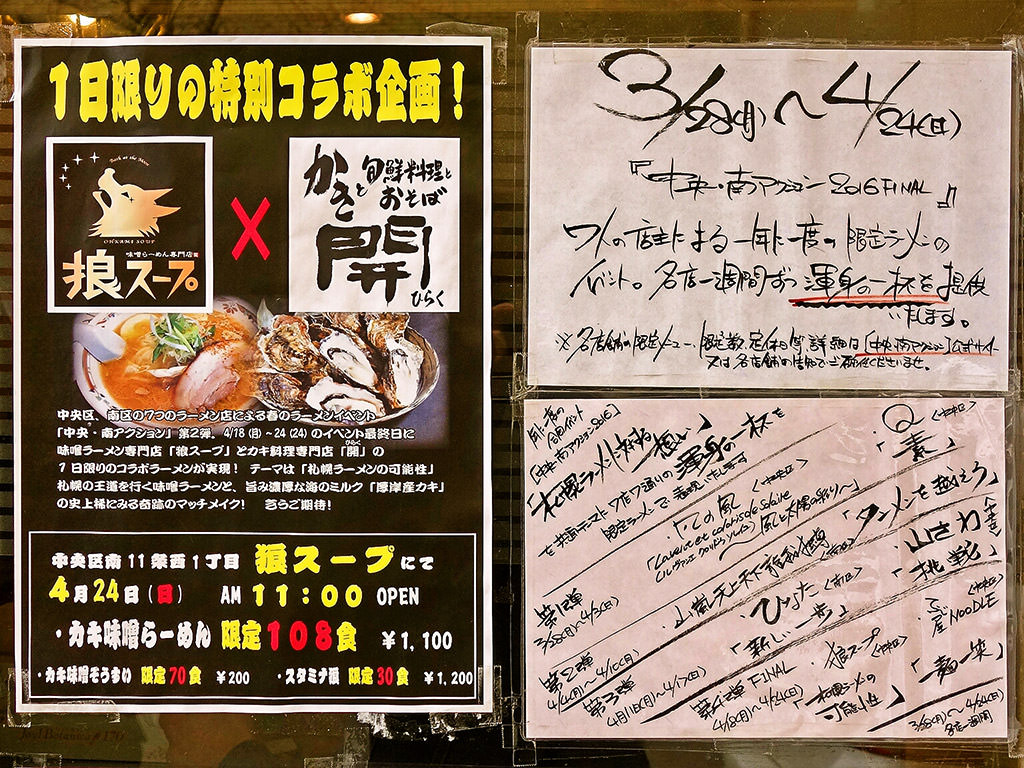 1日限りの特別コラボ企画！
Bark at the Moon
OHKAMI SOUP
味噌らーめん専門店
狼スープ
×
かきと旬鮮料理と
おそば
開
ひらく
中央区、南区の7つのラーメン店による春のラーメンイベント
「中央・南アクション」第2弾、4/18(月)～24(24)のイベント最終日に
味噌ラーメン専門店「狼スープ」とカキ料理専門店「開」の
ひらく
1日限りのコラボラーメンが実現！ テーマは「札幌ラーメンの可能性」
札幌の王道を行く味噌ラーメンと、旨み濃厚な海のミルク「厚岸産カキ」
の史上稀にみる奇跡のマッチメイク！ 乞うご期待！
中央区南11条西1丁目 狼スープにて
4月24日(日) AM 11:00 OPEN
・カキ味噌らーめん 限定108食 ￥1,100
・カキ味噌ぞうすい 限定70食 ￥200 ・スタミナ狼 限定30食 ￥1,200
3/28(月)～4/24(日)
『中央・南アクション2016 FINAL』
7人の店主による一年に一度の限定ラーメンの
イベント。各店一週間ずつ渾身の一杯を提供
いたします。
※各店舗の限定メニュー、限定数、定休日等詳細は[中央・南アクション]公式サイト
又は各店舗の告知でご確認くださいませ。
[中央・南アクション2016]
渾身の一杯を
Q
<中央区>
「素」
「この風」
<中央区>
「タンメンを越えろ」
山嵐
山さわ
挑戦
ひなた
<南区>
「新しい一歩」
狼スープ
<中央区>
「札幌ラーメンの
可能性」
NOODLE
第1弾
3/28(月)～4/3(日)
第2弾
4/4(月)～4/10(日)
第3弾
4/11(月)～4/17(日)
第4弾 FINAL
4/18(月)～4/24(日)
3/28(月)～4/24(日)
各店一週間